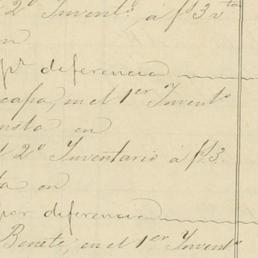 2º Invent.º á f.s 3 v.ta
en
p.r diferencia
capa, en el 1.er Invent.º
en
2º Inventario á f.s 3
ta en
por diferencia
Benete, en el 1.er Invent.º